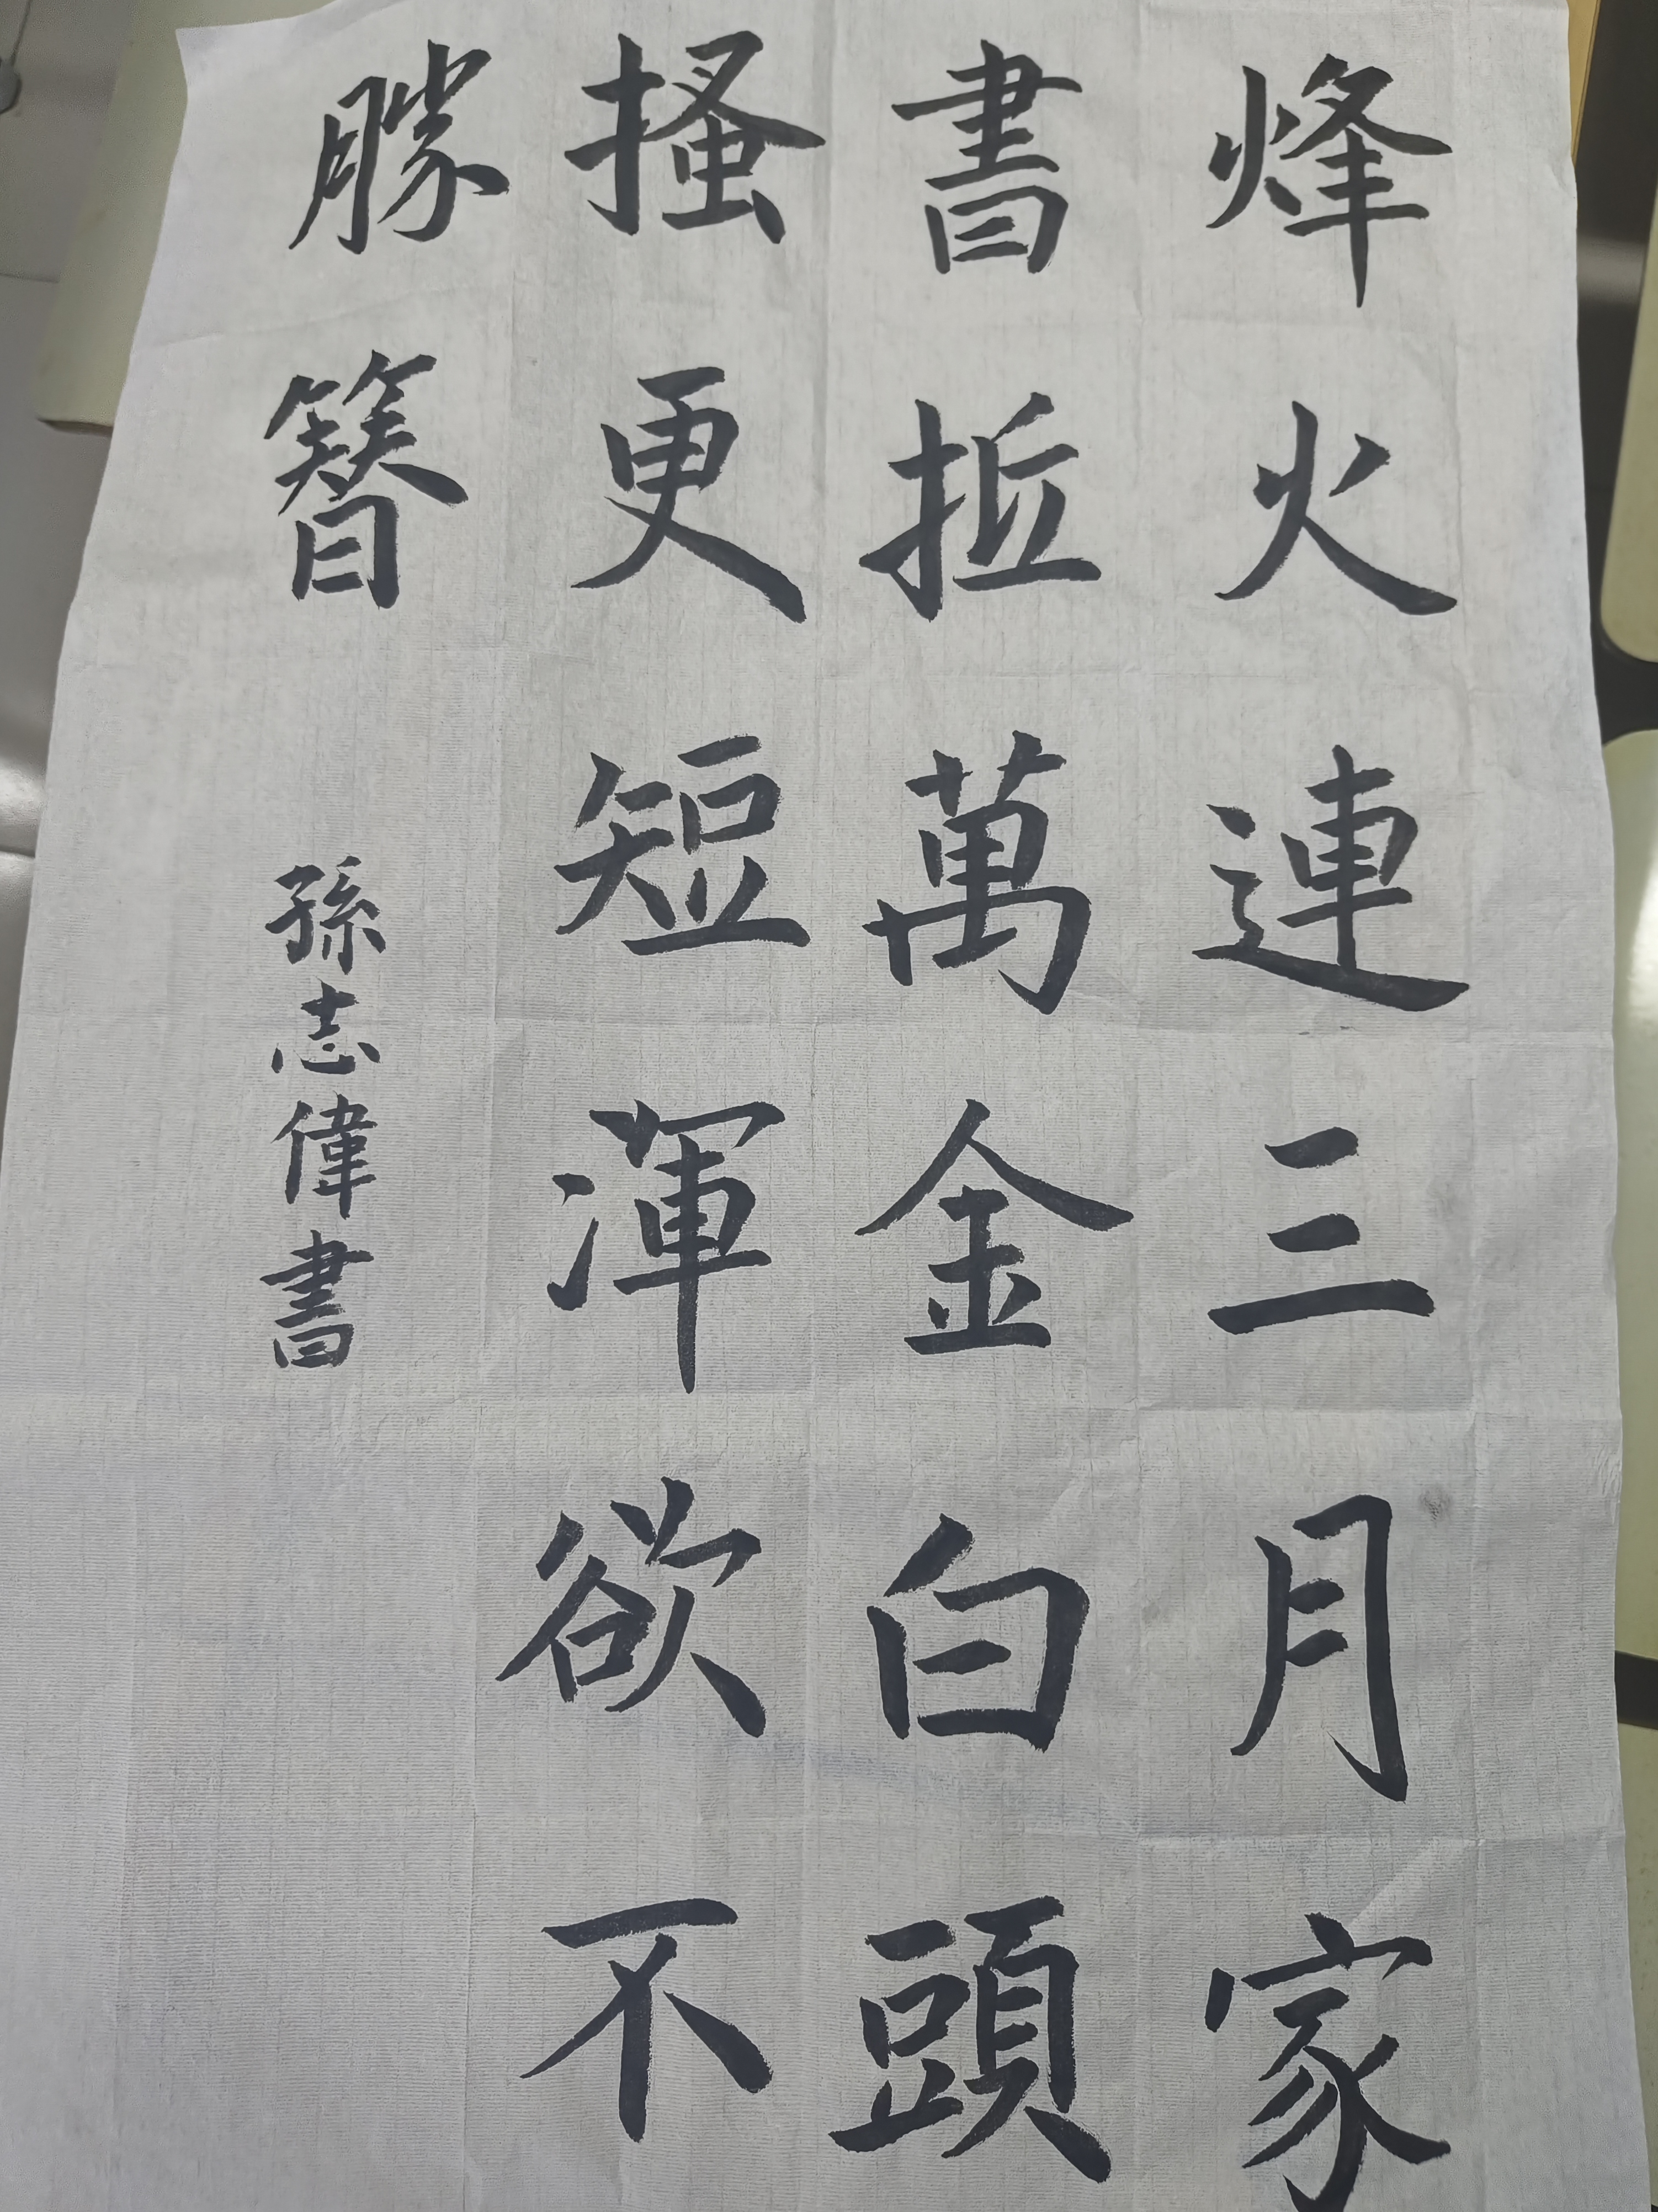 烽火連三月家
書抵萬金白頭
搔更短渾欲不
勝簪
孫志偉書